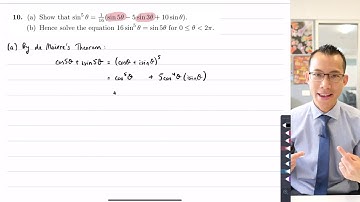 10. (a) Show that sin⁵ θ = 1/16 (sin 5θ − 5 sin 3θ + 10 sin θ).
(b) Hence solve the equation 16 sin⁵ θ = sin 5θ for 0 ≤ θ < 2π.
(a) By de Moivre's Theorem:
cos5θ + isin5θ = (cosθ + isinθ)⁵
= cos⁵θ + 5cos⁴θ (isinθ)
+